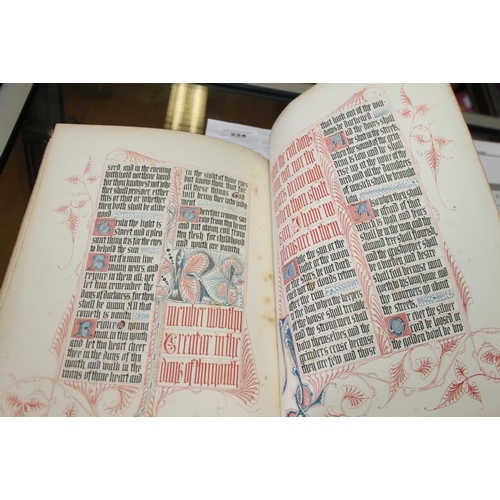 seed, and in the evening
withhold not thine hand:
for thou knowest not whe
ther shall prosper, either
this or that, or whether
they both shall be alike
good.
Truly the light is
sweet and a pleas
ant thing it is for the eyes
to behold the sun
But if a man live
many years, and
rejoice in them all; yet
let him remember the
days of darkness; for they
shall be many. All that
cometh is vanity
Rejoice O young
man, in thy youth;
and let thy heart cheer
thee in the days of thy
youth, and walk in the
ways of thine heart and
in the sight of thine eyes
but know thou, that for
all these things God
will bring thee
Therefore remove sor
row from thy heart
and put away evil from
thy flesh: for childhood
and youth are vanity
Re
member now thy
Creator in the
days of thy youth
the evil days
come not, nor the
years draw nigh
when thou shalt
say, I have no
pleasure in them
While the sun, or the
light, or the moon,
or the stars, be not
darkened, nor the clouds
return after the rain
In the day when the keepers
of the house shall tremble
and the strong men shall
bow themselves, and the
grinders cease because
they are few, and those
that look out of the win
dows be darkened
And the doors shall
be shut in the streets,
when the sound of the grin
ding is low, and he shall
rise up at the voice of the
bird, and all the daughters
of musick shall be brought low
Also when they shall
be afraid of that
which is high, and fears
shall be in the way, and the
almond tree shall flourish
and the grasshopper shall
be a burden, and desire
shall fail: because man
goeth to his long home, and
the mourners go about
the streets
Or ever the silver
cord be loosed or
the golden bowl be bro